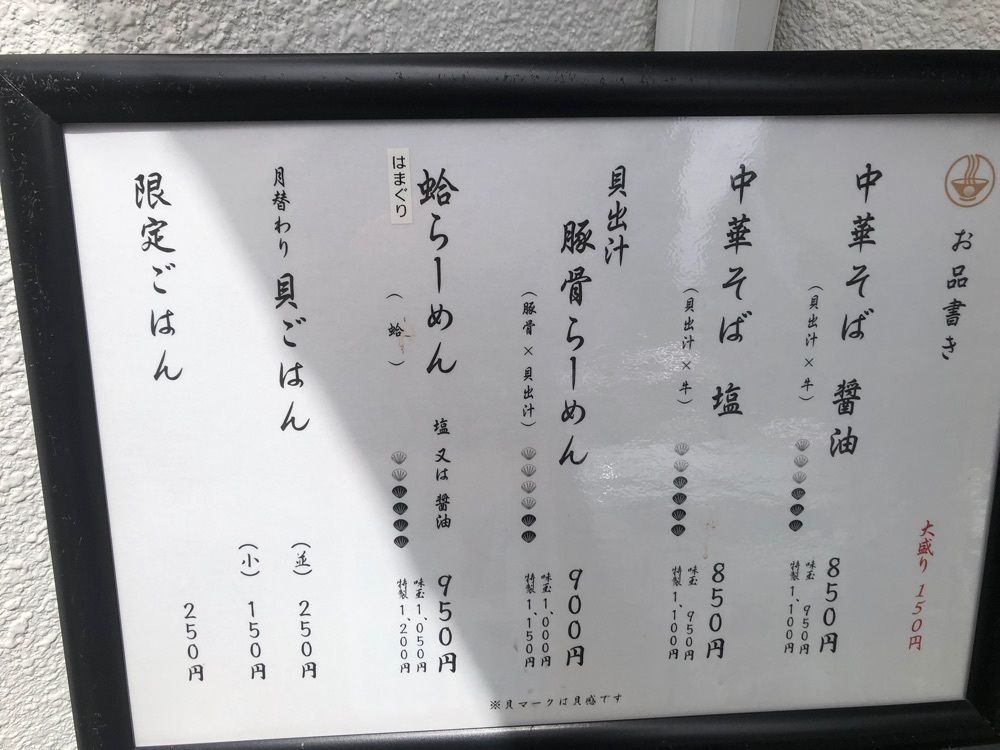 お品書き
大盛り 150円
中華そば 醤油
(貝出汁×牛)
850円
味玉 950円
特製1,100円
中華そば 塩
(貝出汁×牛)
850円
味玉 950円
特製1,100円
貝出汁
豚骨らーめん
(豚骨×貝出汁)
900円
味玉1,000円
特製1,150円
蛤らーめん
はまぐり
(蛤)
塩又は醤油
950円
味玉1,050円
特製1,200円
月替わり 貝ごはん
(並) 250円
(小) 150円
限定ごはん
250円
※貝マークは貝感です